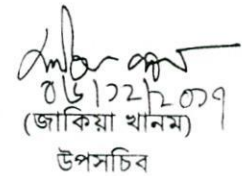 ০৬/১২/২০১৭
(জাকিয়া খানম)
উপসচিব